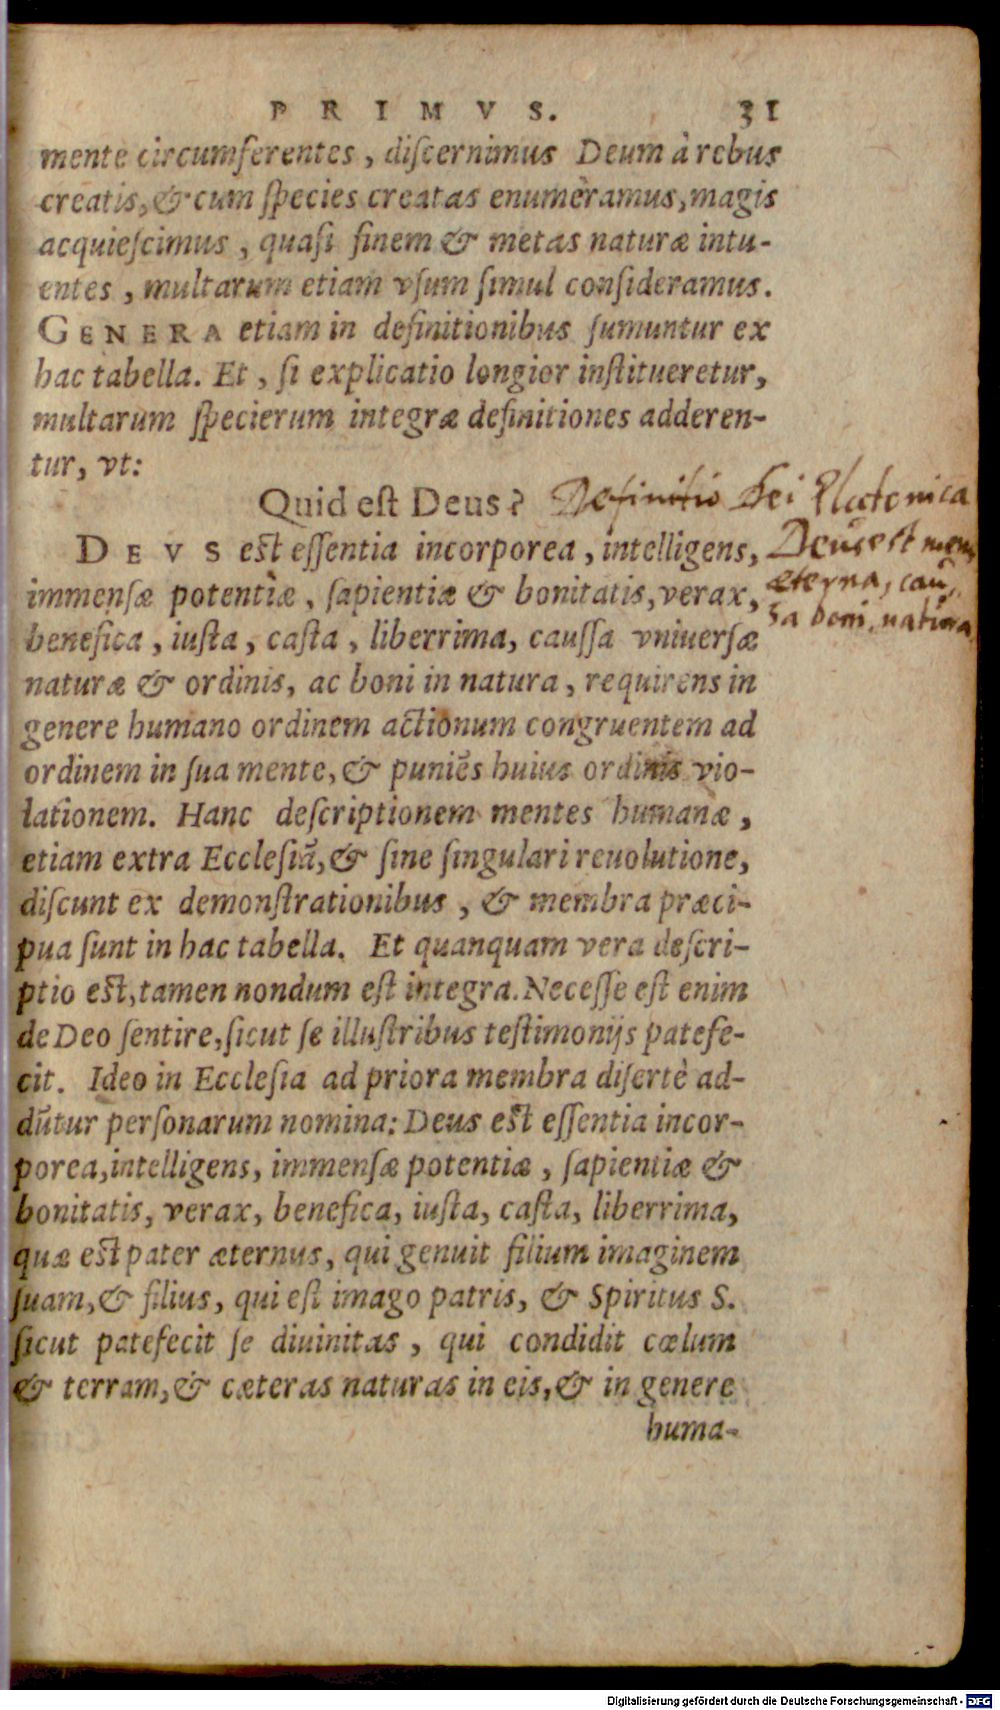 PRIMVS. 31
mente circumferentes, discernimus Deum à rebus
creatis, & cum species creatas enumeramus, magis
acquiescimus, quasi finem & metas naturæ intu-
entes, multarum etiam vsum simul consideramus.
GENERA etiam in definitionibus sumuntur ex
hac tabella. Et, si explicatio longior institueretur,
multarum specierum integræ definitiones adderen-
tur, vt:
Quid est Deus? Definitio Dei Platonica
DEVS est essentia incorporea, intelligens, Deus est mens
immensæ potentiæ, sapientiæ & bonitatis, verax, æterna, cau,
benefica, iusta, casta, liberrima, caussa vniuersæ sa boni, natura
naturæ & ordinis, ac boni in natura, requirens in
genere humano ordinem actionum congruentem ad
ordinem in sua mente, & puniẽs huius ordinis vio-
lationem. Hanc descriptionem mentes humanæ,
etiam extra Ecclesiã, & sine singulari reuolutione,
discunt ex demonstrationibus, & membra præci-
pua sunt in hac tabella. Et quanquam vera descri-
ptio est, tamen nondum est integra. Necesse est enim
de Deo sentire, sicut se illustribus testimonijs patefe-
cit. Ideo in Ecclesia ad priora membra disertè ad-
dũtur personarum nomina: Deus est essentia incor-
porea, intelligens, immensæ potentiæ, sapientiæ &
bonitatis, verax, benefica, iusta, casta, liberrima,
quæ est pater æternus, qui genuit filium imaginem
suam, & filius, qui est imago patris, & Spiritus S.
sicut patefecit se diuinitas, qui condidit cœlum
& terram, & cæteras naturas in eis, & in genere
huma-
Digitalisierung gefördert durch die Deutsche Forschungsgemeinschaft - DFG